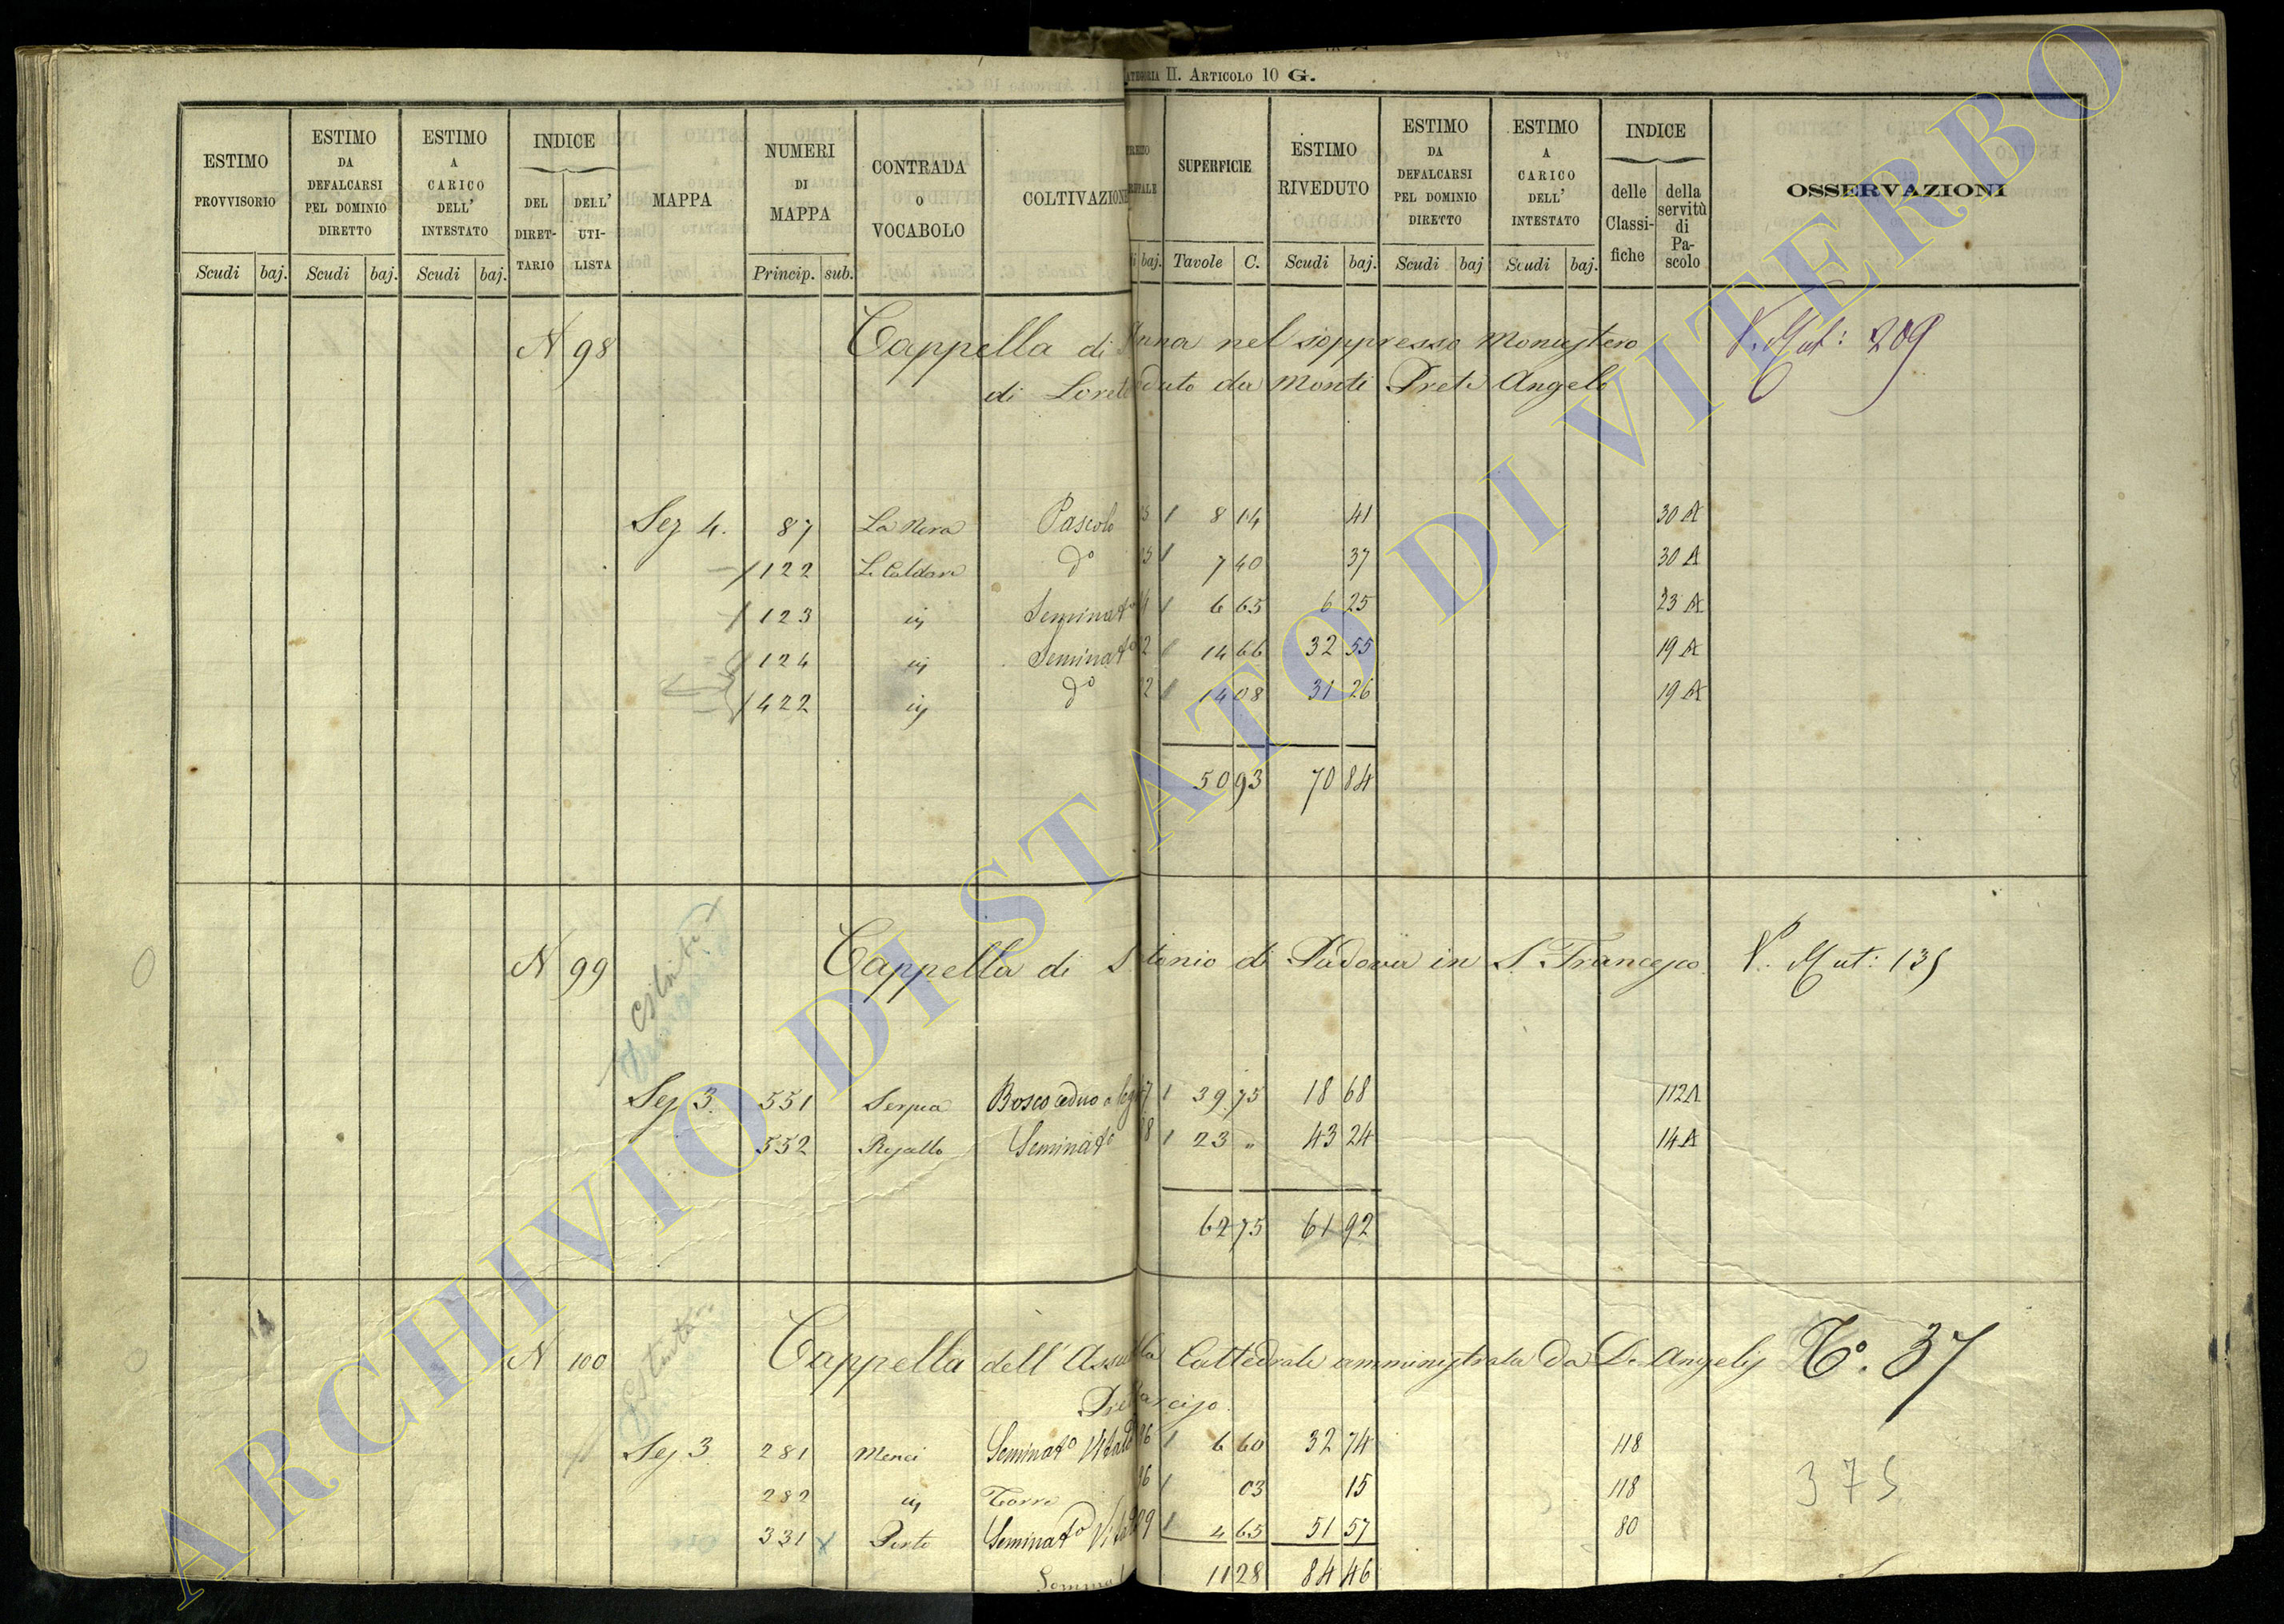 CATEGORIA II. ARTICOLO 10 G.
ESTIMO PROVVISORIO Scudi baj.
ESTIMO DA DEFALCARSI PEL DOMINIO DIRETTO Scudi baj.
ESTIMO A CARICO DELL' INTESTATO Scudi baj.
INDICE DEL DIRETTARIO DELL' UTILISTA
MAPPA
NUMERI DI MAPPA Princip. sub.
CONTRADA O VOCABOLO
COLTIVAZIONE
baj.
SUPERFICIE Tavole C.
ESTIMO RIVEDUTO Scudi baj.
ESTIMO DA DEFALCARSI PEL DOMINIO DIRETTO Scudi baj
ESTIMO A CARICO DELL' INTESTATO Scudi baj.
INDICE delle Classifiche della servitù di Pascolo
OSSERVAZIONI
N 98 Cappella di Anna nel soppresso Monastero V. Mut: 209
di Loreto duto da Monti Prete Angelo
Sez 4. 87 La Nera Pascolo 5 1 8 14 41 30 A
122 Le Caldare do 5 1 7 40 37 30 A
123 in Seminato 1 6 65 6 25 23 A
124 in Seminato 2 1 14 66 32 55 19 A
422 in do 2 1 14 08 31 26 19 A
50 93 70 84
N 99 Cappella di S tonio di Padova in S. Francesco V. Mut: 135
Sez 3. 551 Serpea Bosco ceduo a 7 1 39 75 18 68 112 A
552 Seminato 8 1 23 " 43 24 14 A
62 75 61 92
N 100 Cappella dell' Assu lla Cattedrale amministrata da De Angelis To. 37
Pre arciso
Sez 3. 281 Merci Seminato Vitato 6 1 6 60 32 74 118
282 in Torre 6 1 03 15 118 375
331 x Porto Seminato 9 1 4 65 51 57 80
Somma 11 28 84 46
ARCHIVIO DI STATO DI VITERBO